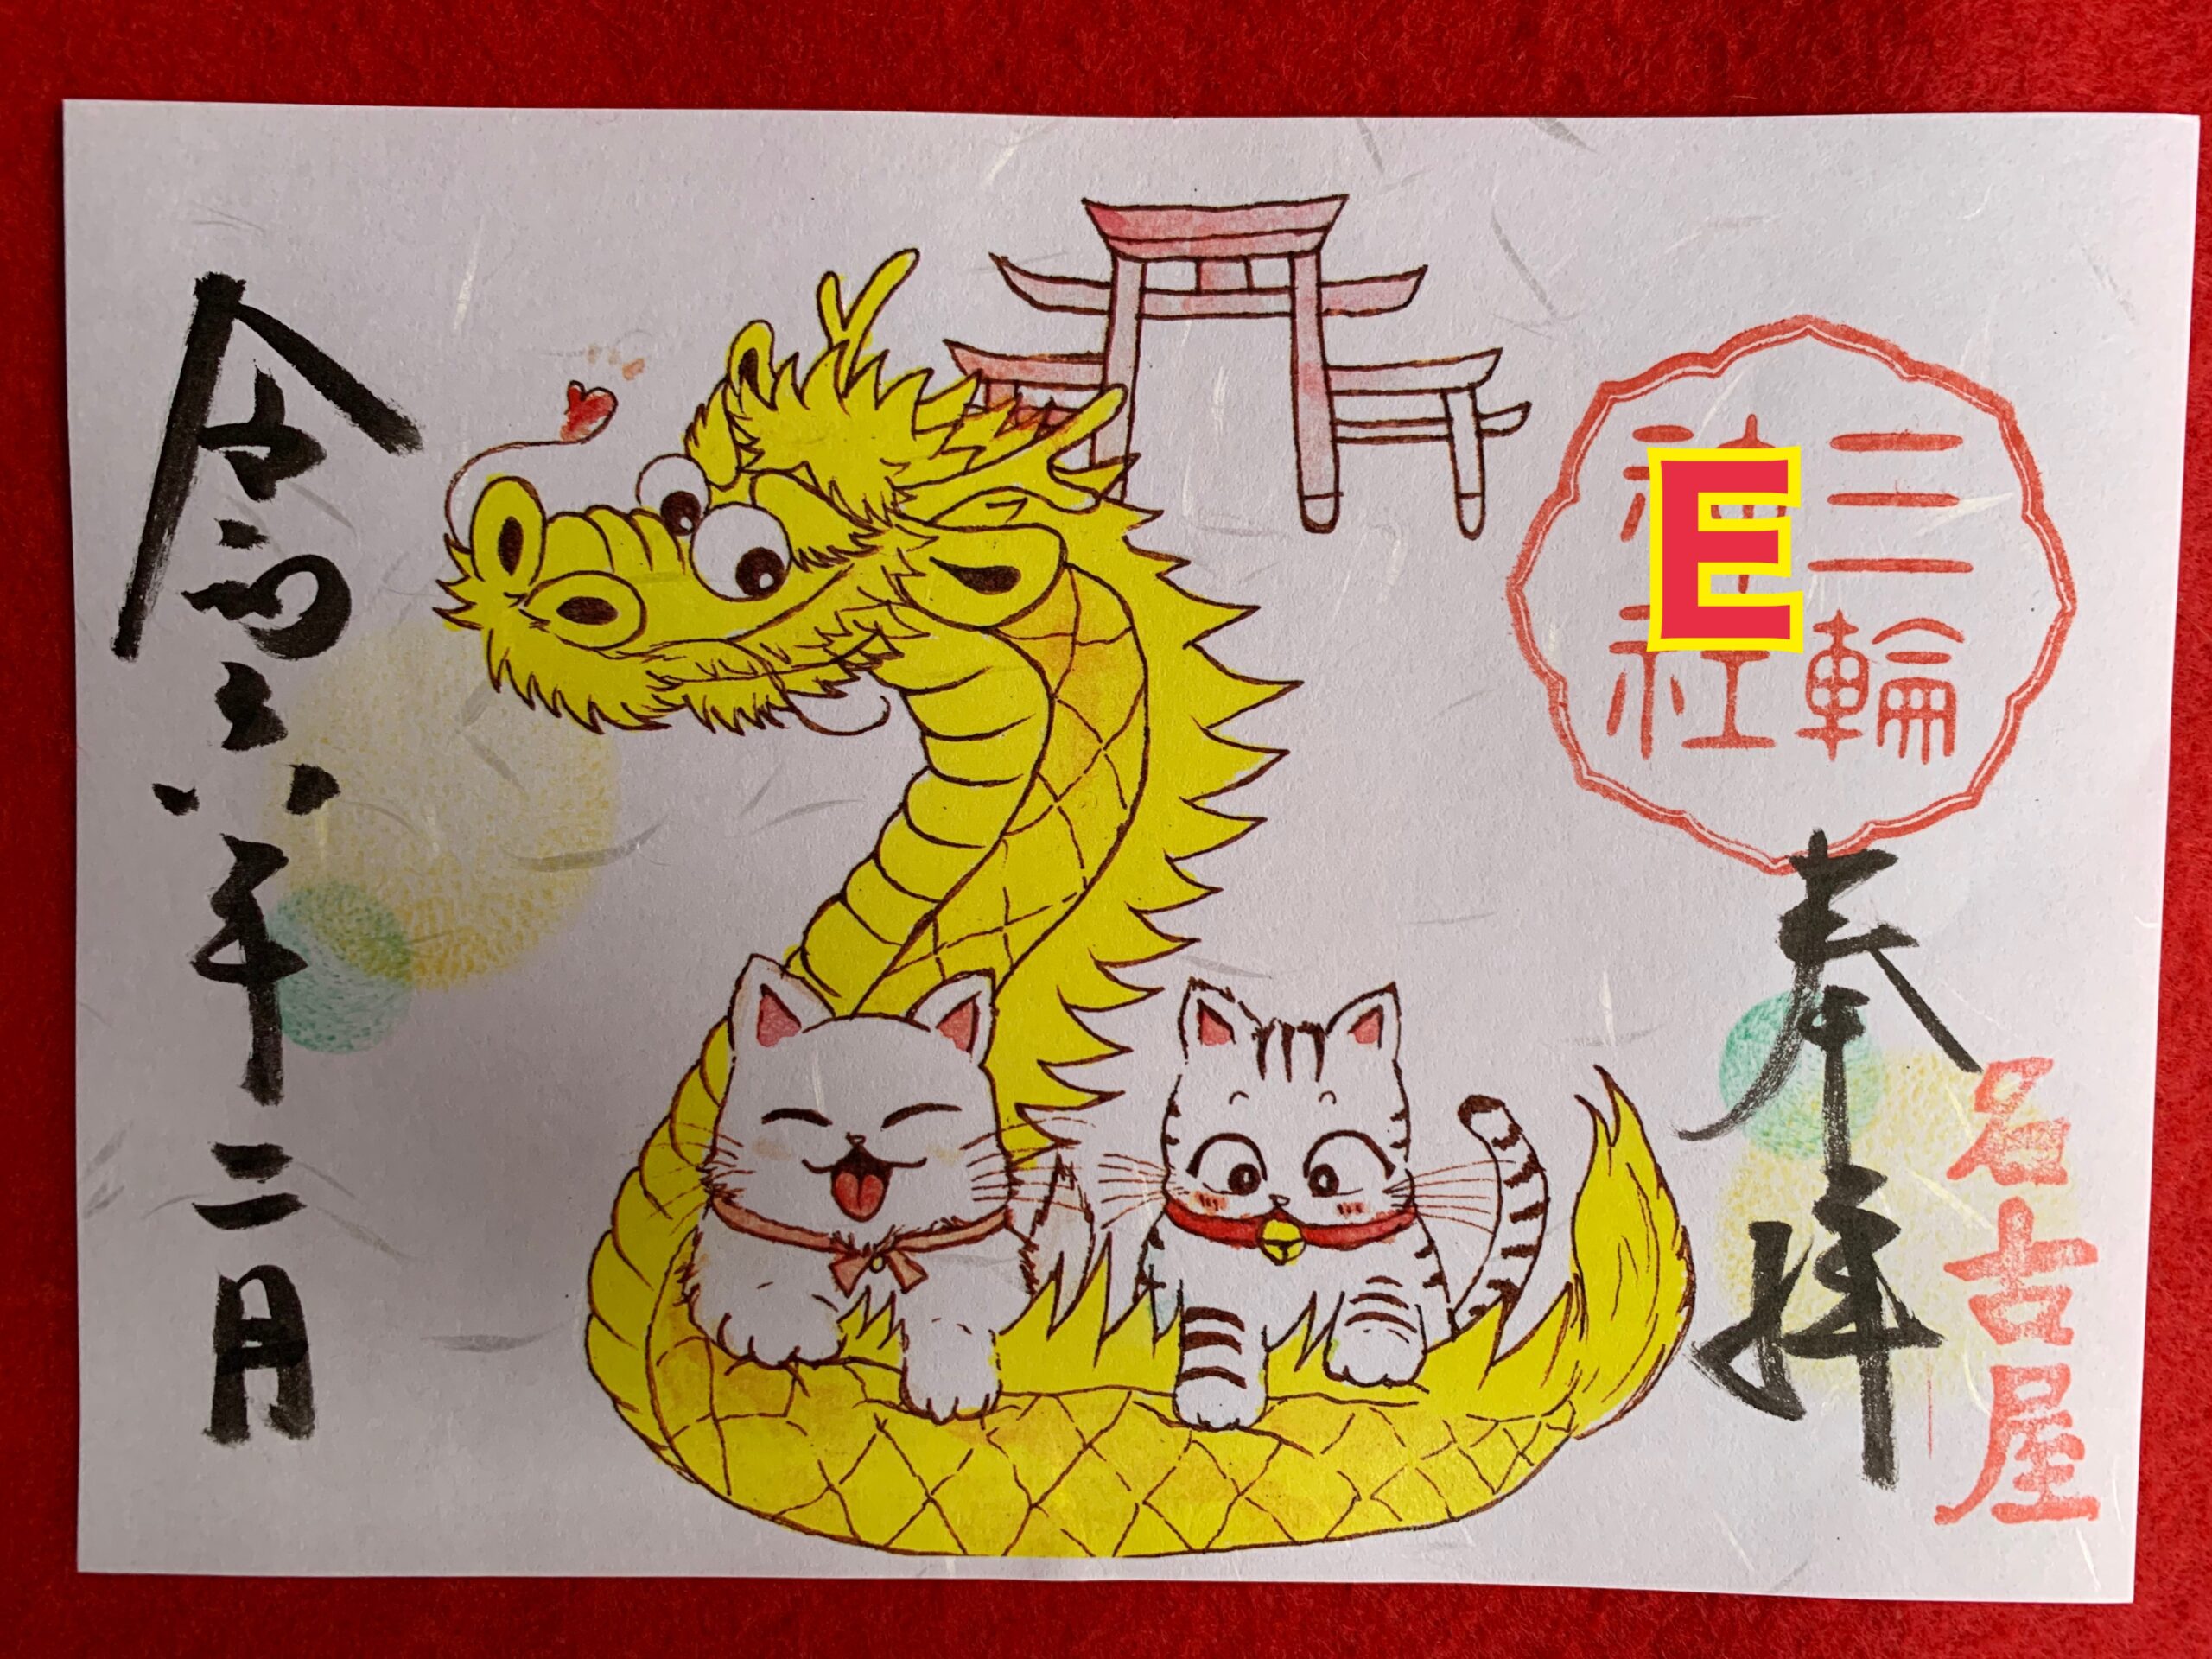 三輪
神社
E
名古屋
奉拝
令和六年二月